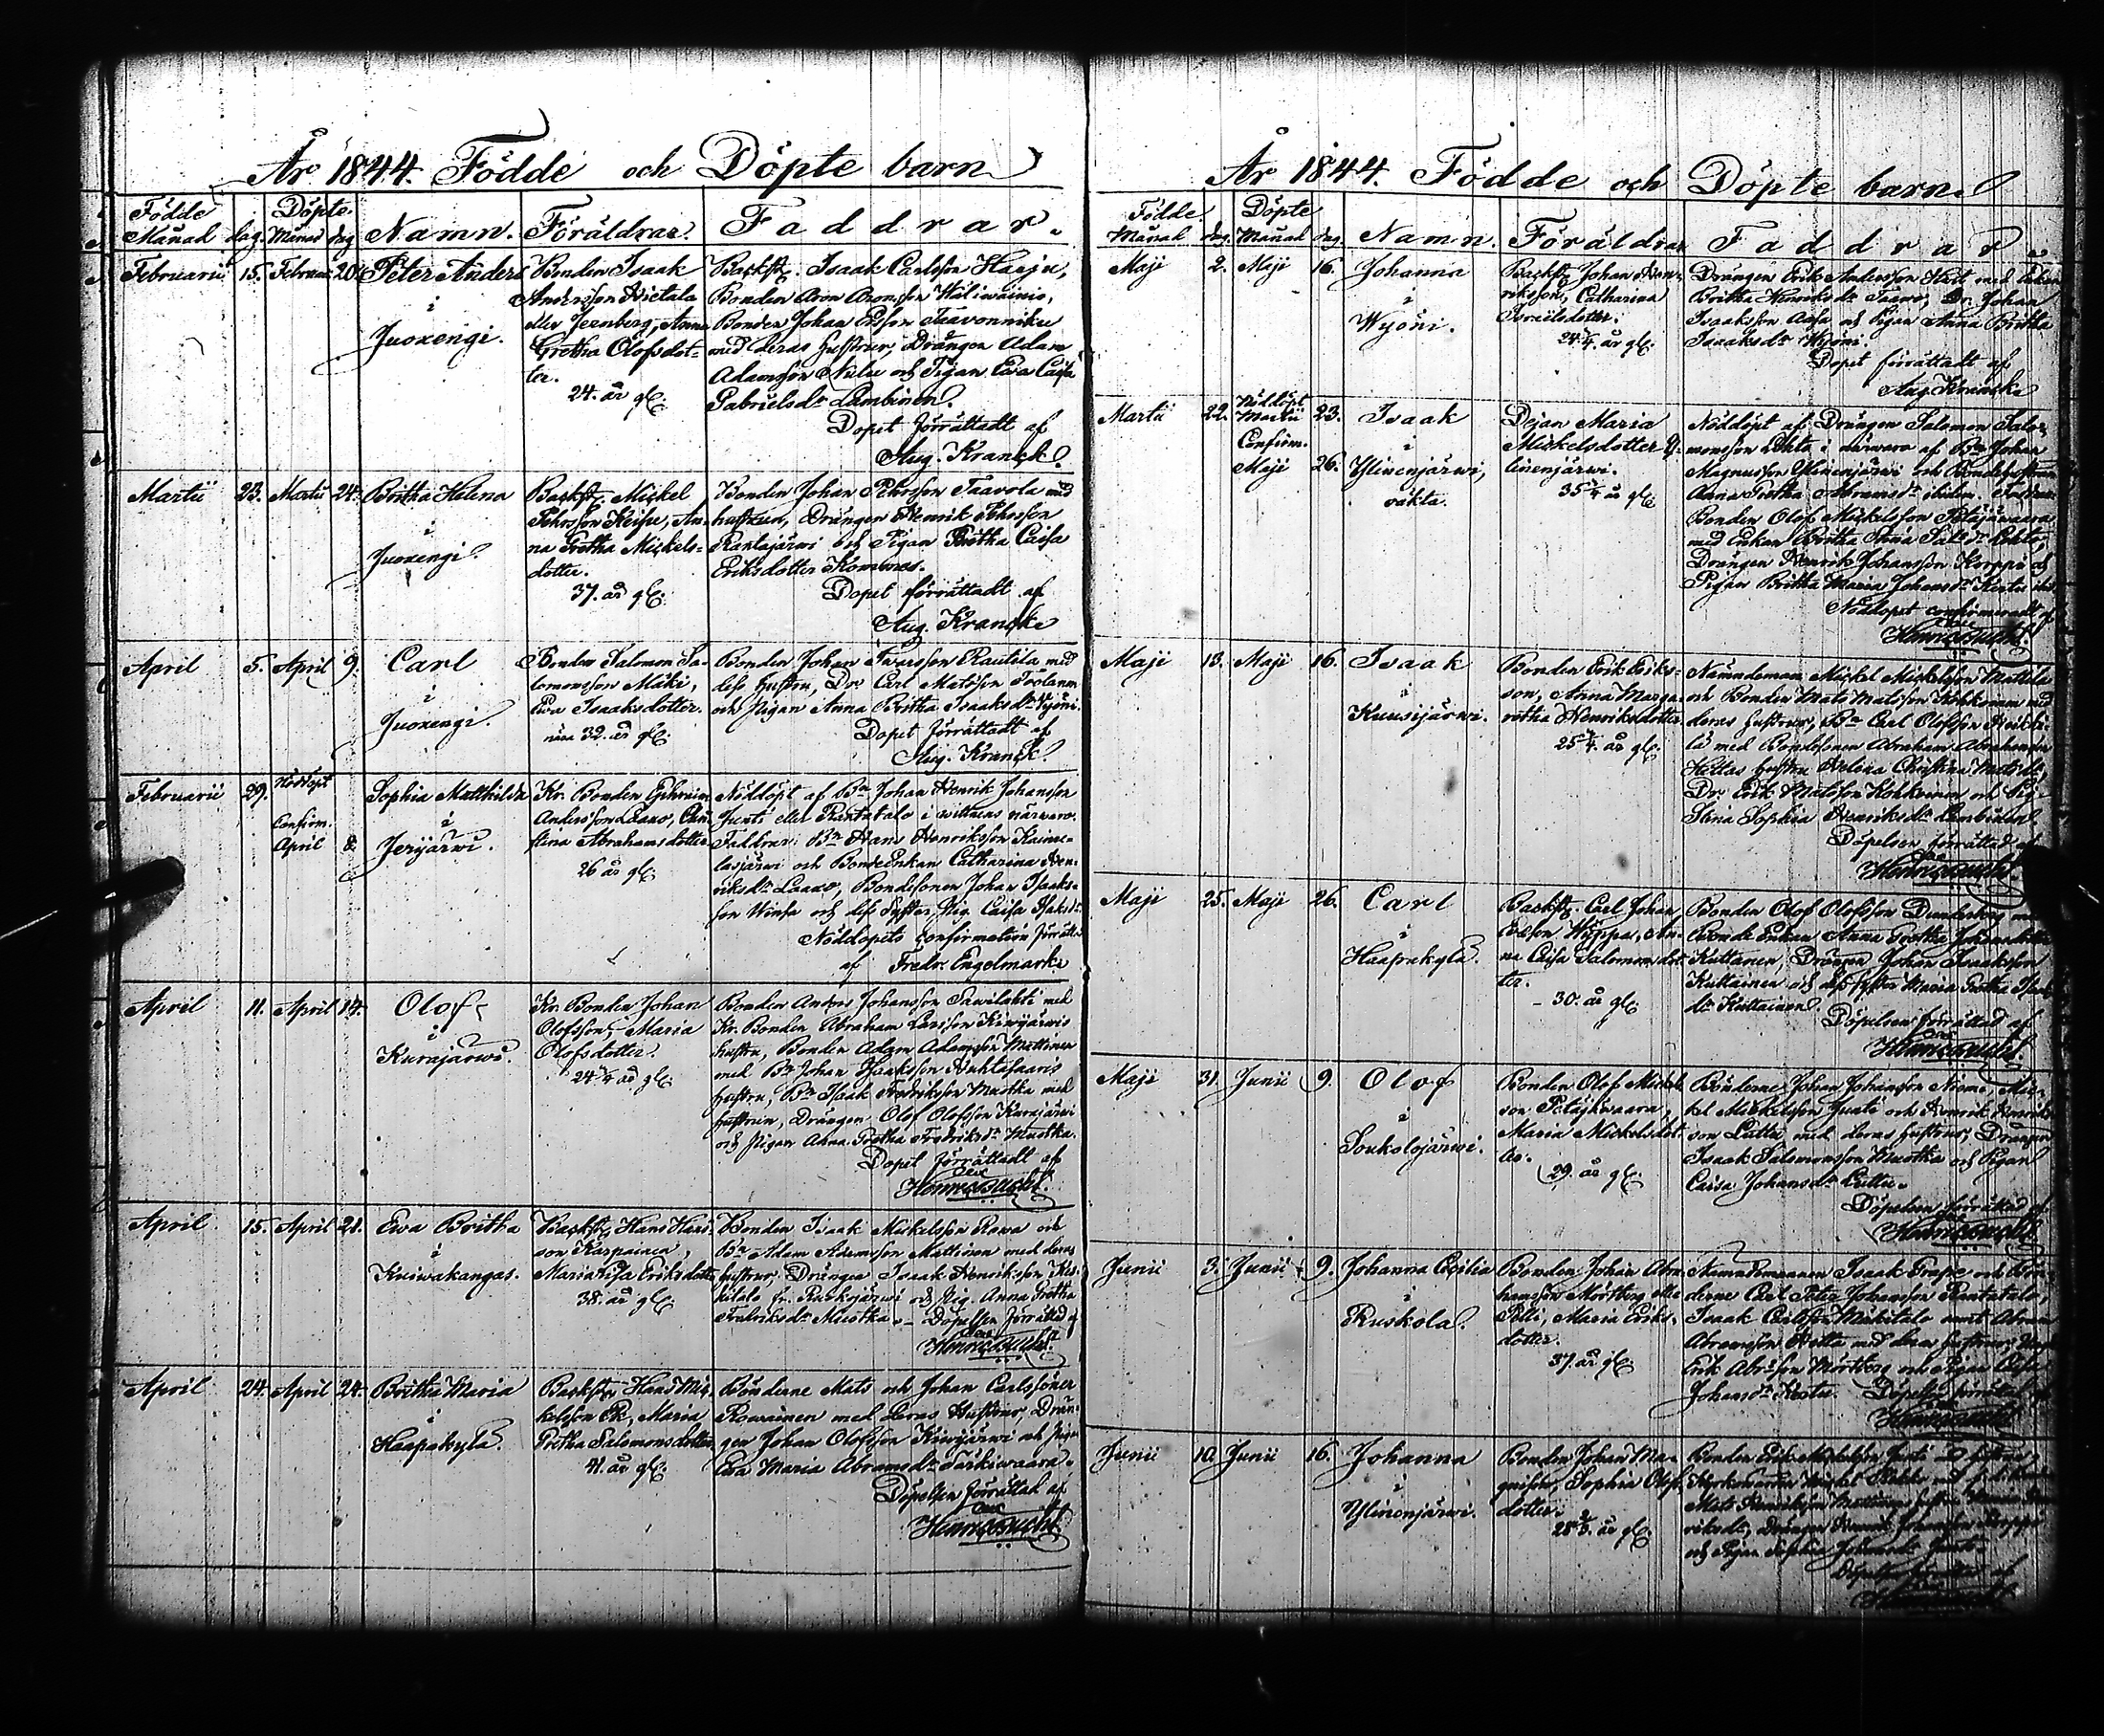 År 1844. Födde och Döpte barn
Födde Döpte
Månad dag. Månad dag Namn. Föräldrar. Faddrar.
Februarii 15. Februar 20. Peter Anders
i
Juoxengi.
Bonden Isaak
Andersson Hietala
eller Jernberg, Anna
Gretha Olofsdot-
ter.
24. år gl.
Backst. Isaak Carlsson Harju,
Bonden Aron Aronsson Wäliwainio,
Bonden Johan Ersson Taavonniku
med deras hustrur, Drängen Adam
Adamsson Nulu och Pigan Ewa Caisa
Gabrielsdr Lambinen.
Dopet förrättadt af
Aug. Kranck.
Martii 23. Martii 24. Britha Helena
i
Juoxengi.
Backst. Mickel
Pehrsson Keisu, An-
na Gretha Mickels-
dotter.
37. år gl.
Bonden Johan Pehrsson Taavola med
hustrun, Drängen Henrik Pehrsson
Rantajärwi och Pigan Britha Caisa
Eriksdotter
Dopet förrättadt af
Aug. Kranck
April 5. April 9. Carl
i
Juoxengi.
Bonden Salomon Sa-
lomonsson Mäki,
Ewa Isaaksdotter.
nära 32. år gl.
Bonden Johan Iwarsson Rautila med
dess hustru, Dr. Carl Matsson Toolanen
och Pigan Anna Britha Isaaksdr Wyöni.
Dopet förrättadt af
Aug. Kranck.
Februarii 29. Nöddöpt
Confirm.
April 8 Sophia Matthilda
i
Jerijärwi.
Kr. Bonden Ephraim
Andersson Laaxo, Chri-
stina Abrahamsdotter.
26 år gl.
Nöddöpt af Bn Johan Henrik Johansson
Junti eller Rantatalo i wittnens närwaro.
Faddrar: Bn Hans Henriksson Kainu-
lasjärwi och BondeEnkan Catharina Hen-
riksdr Laaxo, Bondesonen Johan Isaaks-
son Winsa och dess Syster, Pig. Caisa Isaksdr
Nöddopets confirmation förrätt.
af Fredr. Engelmark
April 11. April 14. Olof
i
Kurajärwi.
Kr. Bonden Johan
Olofsson, Maria
Olofsdotter.
24 1/4 år gl.
Bonden Anders Johansson Sawilahti med
Kr. Bonden Abraham Larsson Kiwijärwis
hustru, Bonden Adam Adamsson Mattinen
med Bn Johan Isaksson Huhtasaaris
hustru, Bn Isaak Fredriksson Mustka med
hustrun, Drängen Olof Olofsson Kurajärwi
och Pigan Anna Gretha Fredriksdr Mustka.
Dopet förrättadt af
Henric Bucht.
April 15. April 21. Ewa Britha
i
Kuiwakangas.
Backst. Hans Hans-
son Karpainen,
Maria Caisa Eriksdotter
38. år gl.
Bonden Isaak Mickelsson Rowa och
Bn Adam Adamsson Mattinen med deras
hustrur, Drängen Isaak Henriksson
fr. Ruskojärwi och Pig. Anna Gretha
Fredriksdr Mustka. – Döpelsen förrättad af
Henric Bucht.
April 24. April 24. Britha Maria
i
Haapakylä.
Backst. Hans Mic-
kelsson Ek, Maria
Gretha Salomonsdotter.
41. år gl.
Bönderne Mats och Johan Carlssöner
Rowainen med deras Hustrur, Drän-
gen Johan Olofsson Kiwijärwi och Pigan
Ewa Maria Abramsdr Särkiwaara.
Döpelsen förrättad af
Henric Bucht.
År 1844. Födde och Döpte barn
Födde Döpte
Månad dag. Månad dag. Namn. Föräldrar Faddrar
Maji 2. Maji 16. Johanna
i
Wyöni.
Backst. Johan Hen-
riksson, Catharina
Israelsdotter.
24 1/4. år gl.
Drängen Erik Andersson med
Britha Henriksdr Taavo, Dr. Johan
Isaaksson och Pigan Anna Britha
Isaaksdr Wyöni.
Dopet förrättadt af
Aug. Kranck
Martii 22. Nöddöpt
Martii 23.
Confirm.
Maji 26. Isaak
i
Ylinenjärwi,
oäkta.
Dejan Maria
Mickelsdotter Y-
linenjärwi.
35 3/4 år gl.
Nöddöpt af Drängen Salomon Salo-
monsson Lohto i närwaro af Bn Johan
Magnusson Ylinenjärwi och Bondehustrun
Anna Gretha Abramsdr ibidem.
Bonden Olof Mickelsson Petäjäwaara
med Enkan Britha Lohto,
Drängen Henrik Johansson Korppi och
Pigan Britha Maria Johansdr
Nöddopet confirmeradt af
Henric Bucht.
Maji 13. Maji 16. Isaak
i
Kuusijärwi.
Bonden Erik Eriks-
son, Anna Marga-
retha Henriksdotter.
25 3/4. år gl.
Nämndeman Mickel Mickelsson Mattila
och Bonden Mats Matsson Kohkoinen med
deras hustrur, Bn Carl Olofsson
med Bondesonen Abraham Abrahamsson
Hietas hustru Helena Christina Matsdr,
Dr. Erik Matsson Kohkoinen och Pig.
Stina Sophia Henriksdr Lambinen.
Döpelsen förrättad af
Henric Bucht.
Maji 25. Maji 26. Carl
i
Haapakylä.
Backst. Carl Johan
Ersson Wyppa, An-
na Caisa Salomonsdot-
ter.
30. år gl.
Bonden Olof Olofsson Dunderberg med
Bonde Enkan Anna Gretha Johansdotter
Kuttainen, Drängen Johan Isaaksson
Kuttainen och dess syster Maria Gretha
dr Kuttainen.
Döpelsen förrättad af
Henric Bucht.
Maji 31. Junii 9. Olof
i
Soukolojärwi.
Bonden Olof Mickels-
son Petäjäwaara,
Maria Mickelsdot-
ter.
29. år gl.
Bönderne Johan Johansson Niemi, Mic-
kel Mickelsson Junti och Henrik Henriks-
son Luttu med deras hustrur, Drängen
Isaak Salomonsson Mustka och Pigan
Caisa Johansdr Luttu.
Döpelsen förrättad af
Henric Bucht.
Junii 3. Junii 9. Johanna Cecilia
i
Ruskola.
Bonden Johan Abra-
hamsson Mörtberg eller
Pelli, Maria Eriks-
dotter.
37. år gl.
Nämndemannen Isaak Grape och Bön-
derne Carl Petter Johansson Rantatalo,
Isaak Carlsson Mäkitalo samt Abram
Abramsson Hietta med deras hustrur,
Erik Abr.sson Mörtberg och Pigan Caisa
Johansdr Döpelsen förrättad af
Henric Bucht
Junii 10. Junii 16. Johanna
i
Ylinenjärwi.
Bonden Johan Ma-
gnusson, Sophia Olofs-
dotter.
28 2/3. år gl.
Bonden Erik Mickelsson Junti med hustru,
Kyrkowärden Mickel
Mats Henriksson Mattinens hustru
riksdr, Drängen Henrik Johansson Korppi
och Pigan Sophia Johansdr Junti.
Döpelsen förrättad af